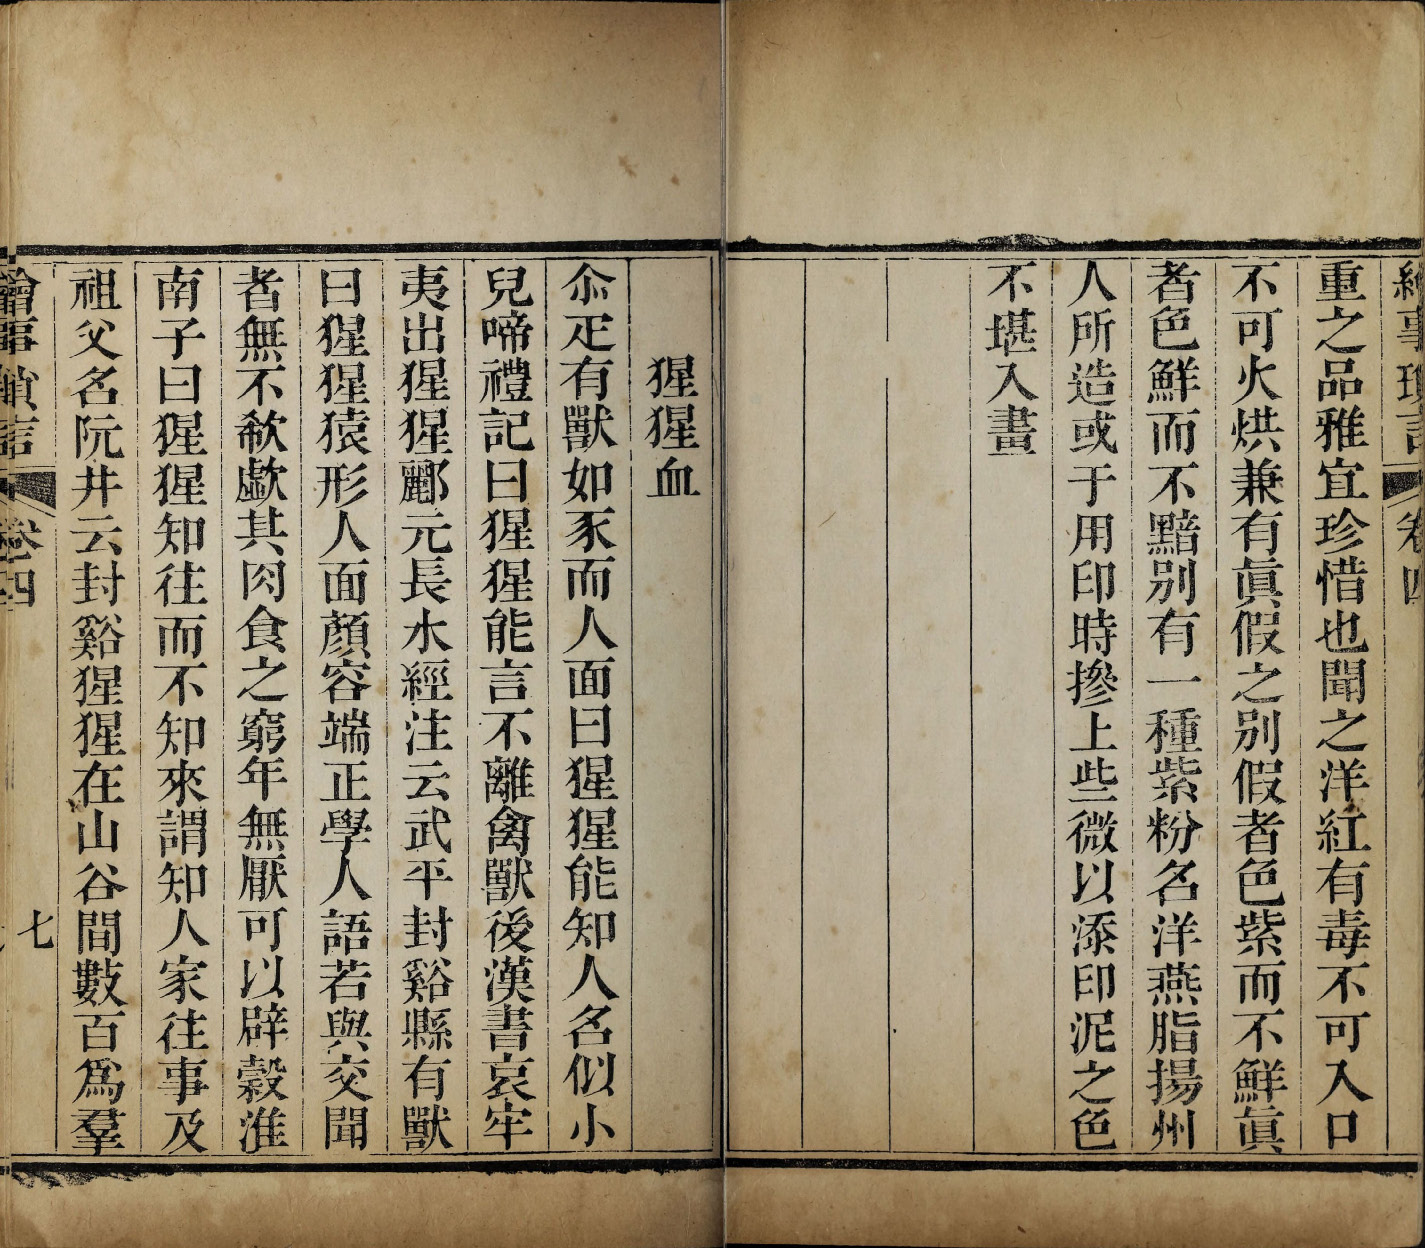 繪事瑣言 卷四
重之品雅宜珍惜也聞之洋紅有毒不可入口
不可火烘兼有眞假之別假者色紫而不鮮眞
者色鮮而不黯别有一種紫粉名洋燕脂揚州
人所造或于用印時摻上些微以添印泥之色
不堪入畫
猩猩血
尒疋有獸如豕而人面曰猩猩能知人名似小
兒啼禮記曰猩猩能言不離禽獸後漢書哀牢
夷出猩猩酈元長水經注云武平封谿縣有獸
曰猩猩猿形人面顔容端正學人語若與交聞
者無不欷歔其肉食之窮年無厭可以辟穀淮
南子曰猩猩知往而不知來謂知人家往事及
祖父名阮井云封谿猩猩在山谷間數百爲羣
繪事瑣言 卷四 七